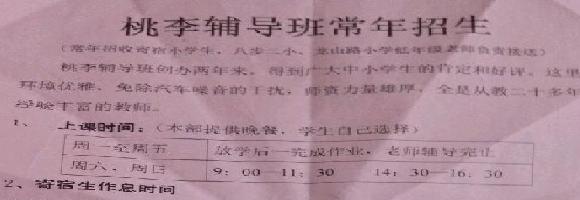 桃李辅导班常年招生
(常年招收寄宿小学生，八步二小、龙山路小学低年级老师负责接送)
桃李辅导班创办两年来，得到广大中小学生的肯定和好评。这里
环境优雅，免除汽车噪音的干扰，师资力量雄厚，全是从教二十多年
经验丰富的教师。
1、 上课时间：(本部提供晚餐，学生自己选择)
周一至周五 放学后—完成作业，老师辅导完止
周六、周日 9：00—11：30 14：30—16：30
2、寄宿生作息时间